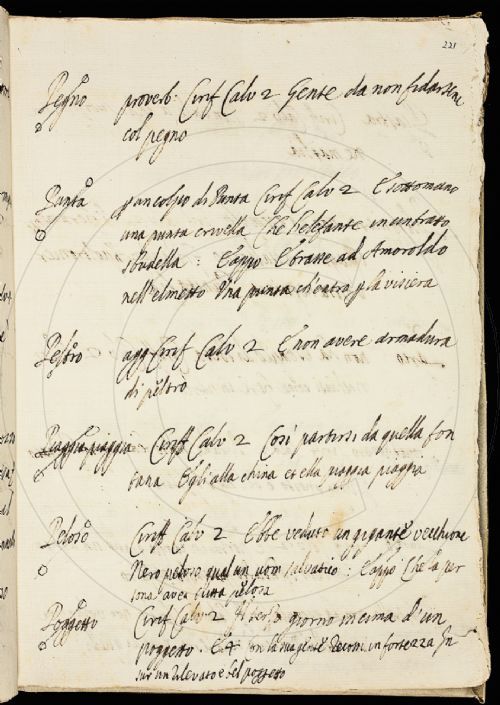 221
Pegno proverb. Ciriff Calv 2 Gente da non fidarsene
col pegno
Punta p un colpo di Punta Ciriff Calv 2 E sottomano
una punta crivella Che l'elefante in un tratto
sbudella : E appo E trasse ad Amoroldo
nell'elmetto Una punta ch'entro p la visiera
Peltro agg Ciriff Calv 2 E non avere armadura
di peltro
Piaggia piaggia Ciriff Calv 2 Così partirsi da quella fon
tana Egli alla china et ella piaggia piaggia
Peloso Ciriff Calv 2 Ebbe veduto un gigante vecchione
Nero peloso qual un uom salvatico : E appo Che la per
sona avea tutta pelosa
Poggetto Ciriff Calv 2 Il terzo giorno in cima d'un
poggetto . E 4 con la in fortezza
sur un rilevato e bel poggetto